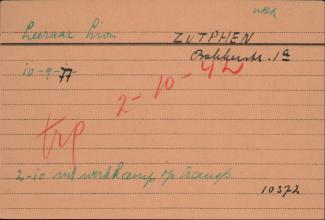 WBK
Leeraar Lion ZUTPHEN
Bakkerstr. 1a
10-9-77
2-10-42
trp
2-10 uit werkkamp op transp.
10372